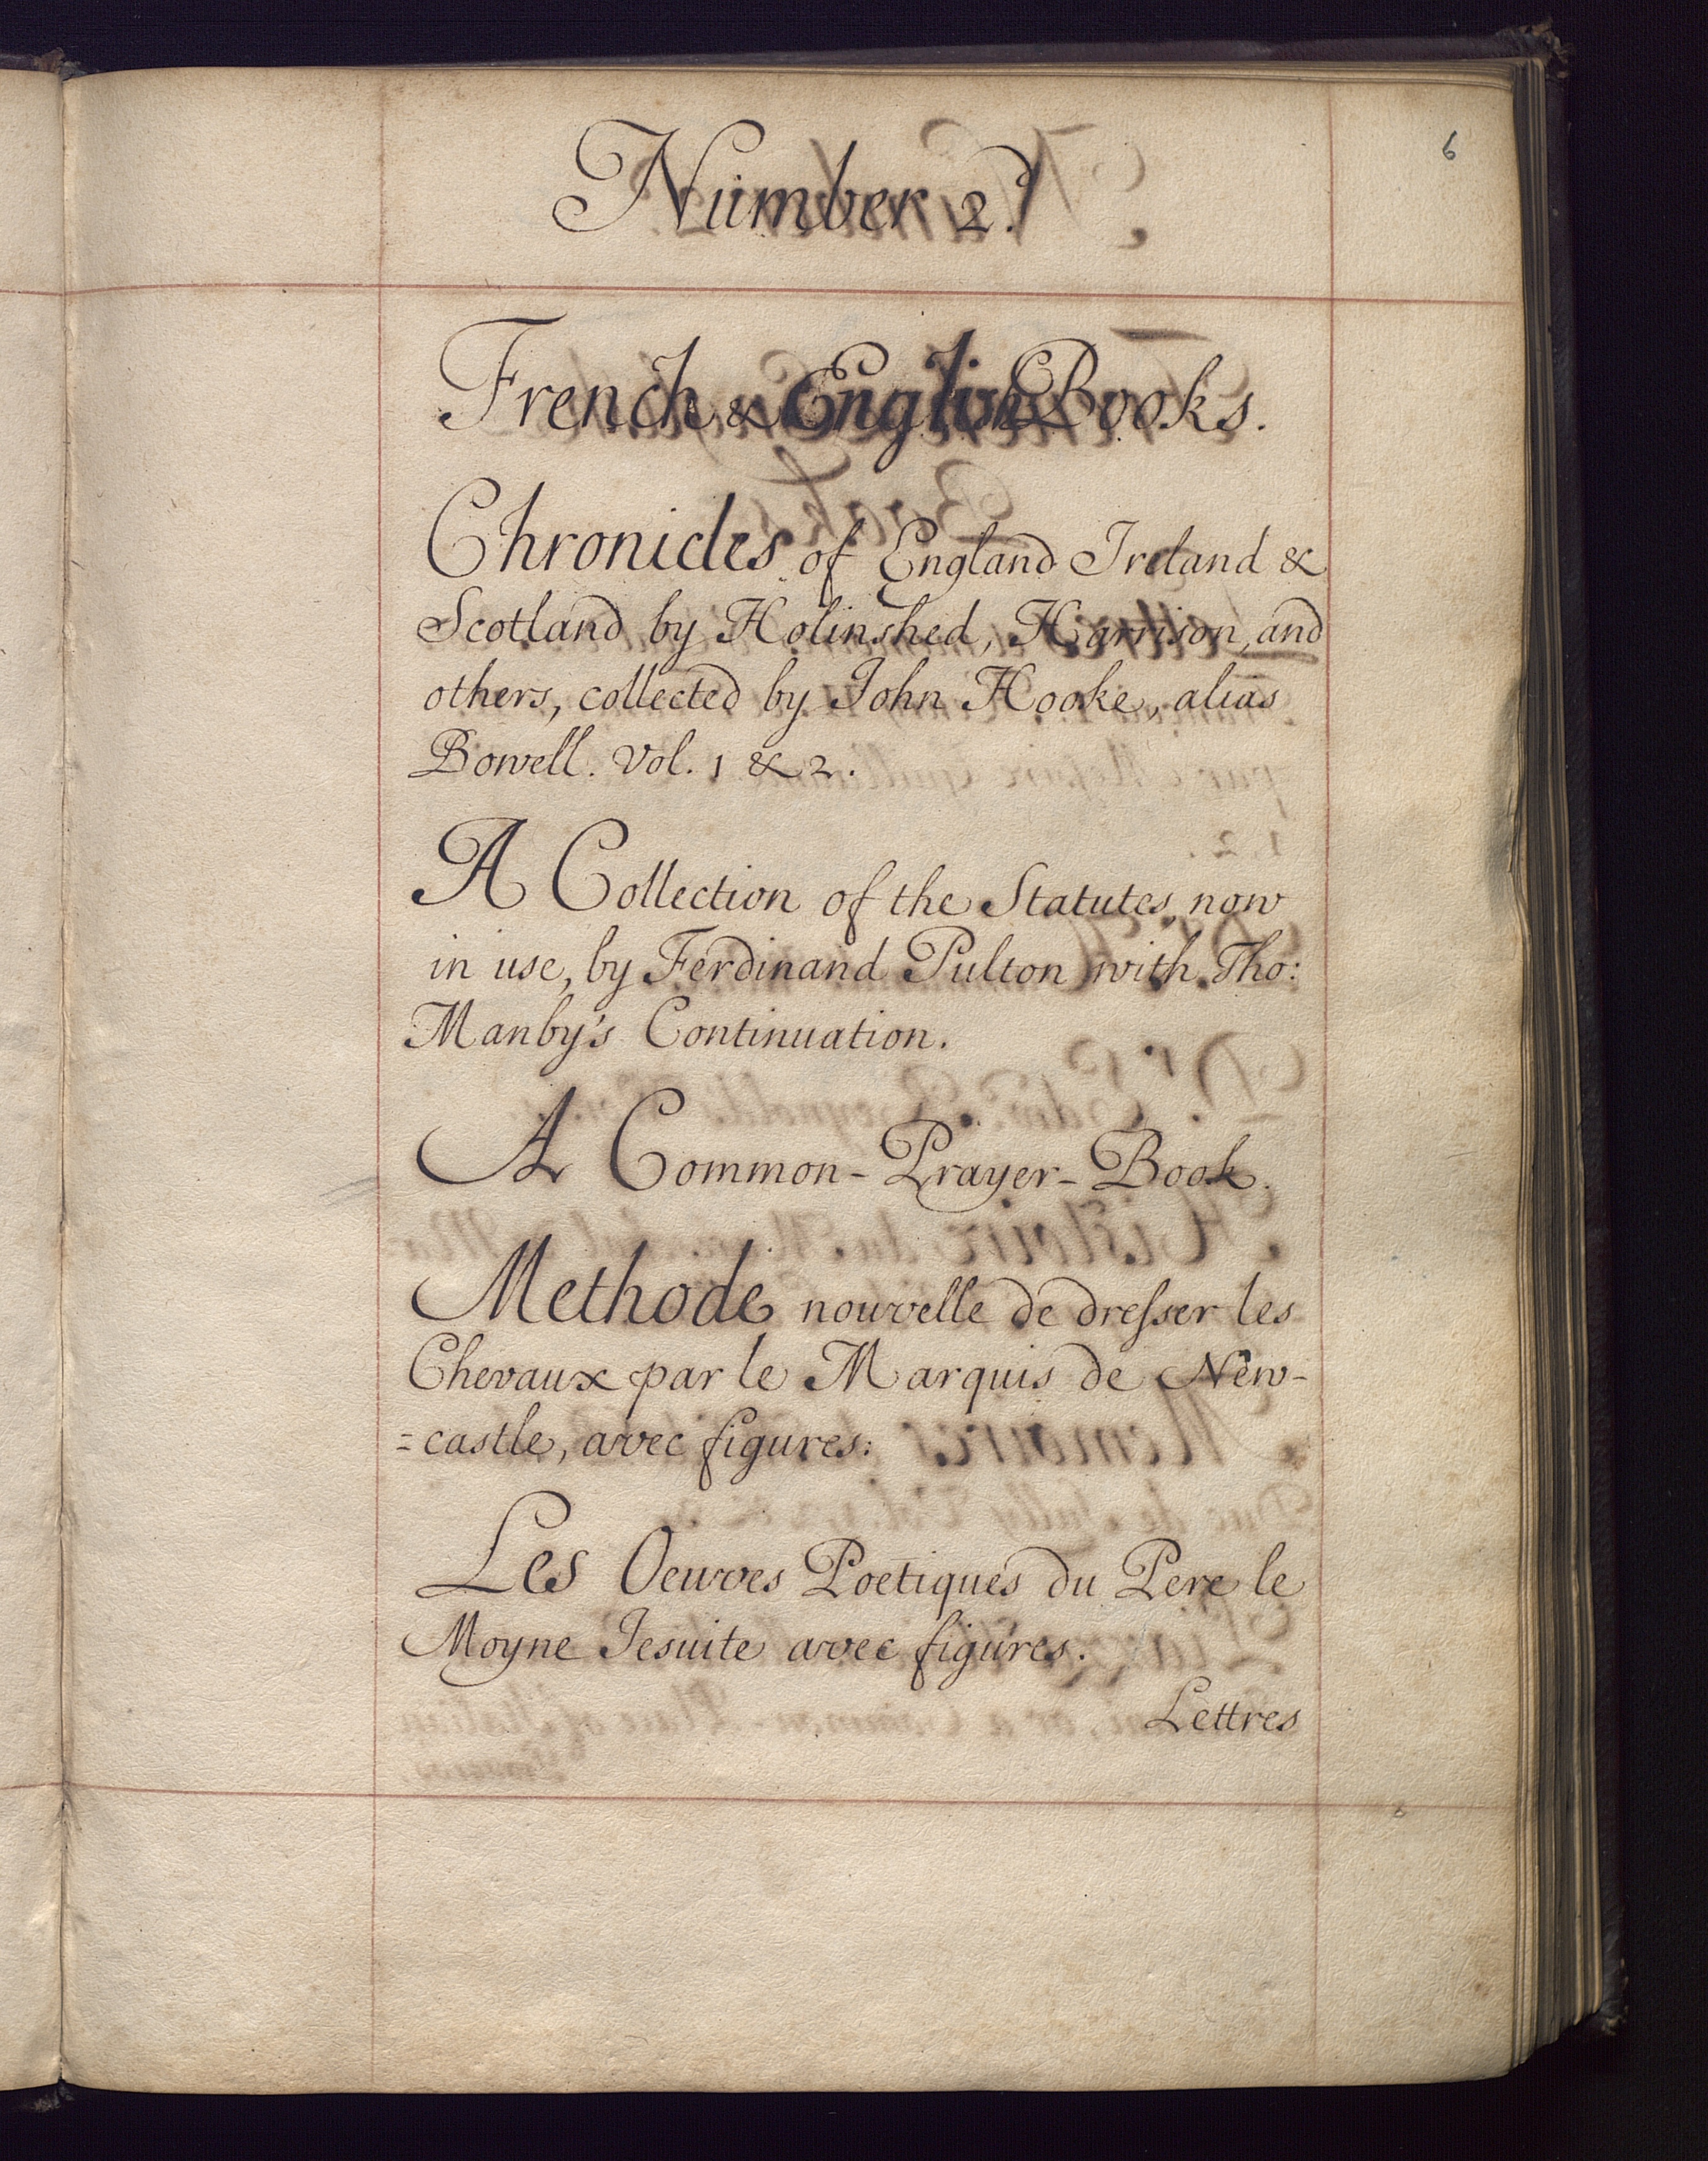 6
Number 2.
French & English Books.
Chronicles of England Ireland &
Scotland by Holinshed, Harrison, and
others, collected by John Hooke, alias
Bowell. Vol. 1 & 2.
A Collection of the Statutes now
in use, by Ferdinand Pulton with Tho:
Manby's Continuation.
A Common-Prayer-Book.
Methode nouvelle de dreſser les
Chevaux par le Marquis de New-
=castle, avec figures:
Les Oeuvres Poetiques du Pere le
Moyne Jesuite avec figures.
Lettres